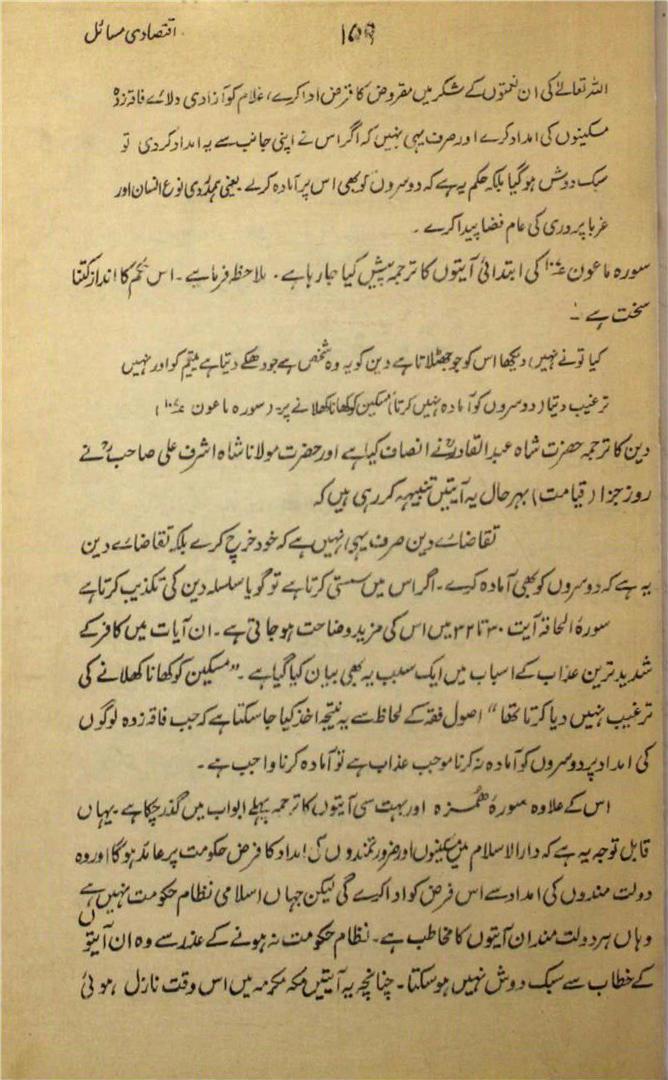 ۱۵۶ اقتصادی مسائل
اللہ تعالےٰ کی ان نعمتوں کے شکر میں مقروض کا قرض ادا کرے، غلام کو آزادی دلائے فاقہ زدہ
مسکینوں کی امداد کرے اور صرف یہی نہیں کہ اگر اس نے اپنی جانب سے یہ امداد کر دی تو
سبک دوش ہو گیا بلکہ حکم یہ ہے کہ دوسروں کو بھی اس پر آمادہ کرے یعنی ہمدردی نوع انسان اور
غربا پروری کی عام فضا پیدا کرے ۔
سورہ ماعون ۱۰۷ کی ابتدائی آیتوں کا ترجمہ پیش کیا جا رہا ہے ۔ ملاحظہ فرمایئے ۔ اس حکم کا انداز کتنا
سخت ہے :
کیا تو نے نہیں دیکھا اس کو جو جھٹلاتا ہے دین کو یہ وہ شخص ہے جو دھکے دیتا ہے یتیم کو اور نہیں
ترغیب دیتا (دوسروں کو آمادہ نہیں کرتا) مسکین کو کھانا کھلانے پر ۔ (سورہ ماعون ۱۰۷)
دین کا ترجمہ حضرت شاہ عبدالقادرؒ نے انصاف کیا ہے اور حضرت مولانا شاہ اشرف علی صاحبؒ نے
روز جزا (قیامت) بہرحال یہ آیتیں تنبیہہ کر رہی ہیں کہ
تقاضائے دین صرف یہی نہیں ہے کہ خود خرچ کرے بلکہ تقاضائے دین
یہ ہے کہ دوسروں کو بھی آمادہ کرے ۔ اگر اس میں سستی کرتا ہے تو گویا سلسلہ دین کی تکذیب کرتا ہے
سورۂ الحاقہ آیت ۳۰ تا ۳۲ میں اس کی مزید وضاحت ہو جاتی ہے ۔ ان آیات میں کافر کے
شدید ترین عذاب کے اسباب میں ایک سبب یہ بھی بیان کیا گیا ہے ۔ ”مسکین کو کھانا کھلانے کی
ترغیب نہیں دیا کرتا تھا“ اصول فقہ کے لحاظ سے یہ نتیجہ اخذ کیا جا سکتا ہے کہ جب فاقہ زدہ لوگوں
کی امداد پر دوسروں کو آمادہ نہ کرنا موجب عذاب ہے تو آمادہ کرنا واجب ہے ۔
اس کے علاوہ سورۂ ھمزہ اور بہت سی آیتوں کا ترجمہ پہلے ابواب میں گذر چکا ہے یہاں
قابل توجہ یہ ہے کہ دارالاسلام میں مسکینوں اور ضرورتمندوں کی امداد کا فرض حکومت پر عائد ہو گا اور وہ
دولت مندوں کی امداد سے اس فرض کو ادا کرے گی لیکن جہاں اسلامی نظام حکومت نہیں ہے
وہاں ہر دولت مند ان آیتوں کا مخاطب ہے ۔ نظام حکومت نہ ہونے کے عذر سے وہ ان آیتوں
کے خطاب سے سبک دوش نہیں ہو سکتا ۔ چنانچہ یہ آیتیں مکہ مکرمہ میں اس وقت نازل ہوئی